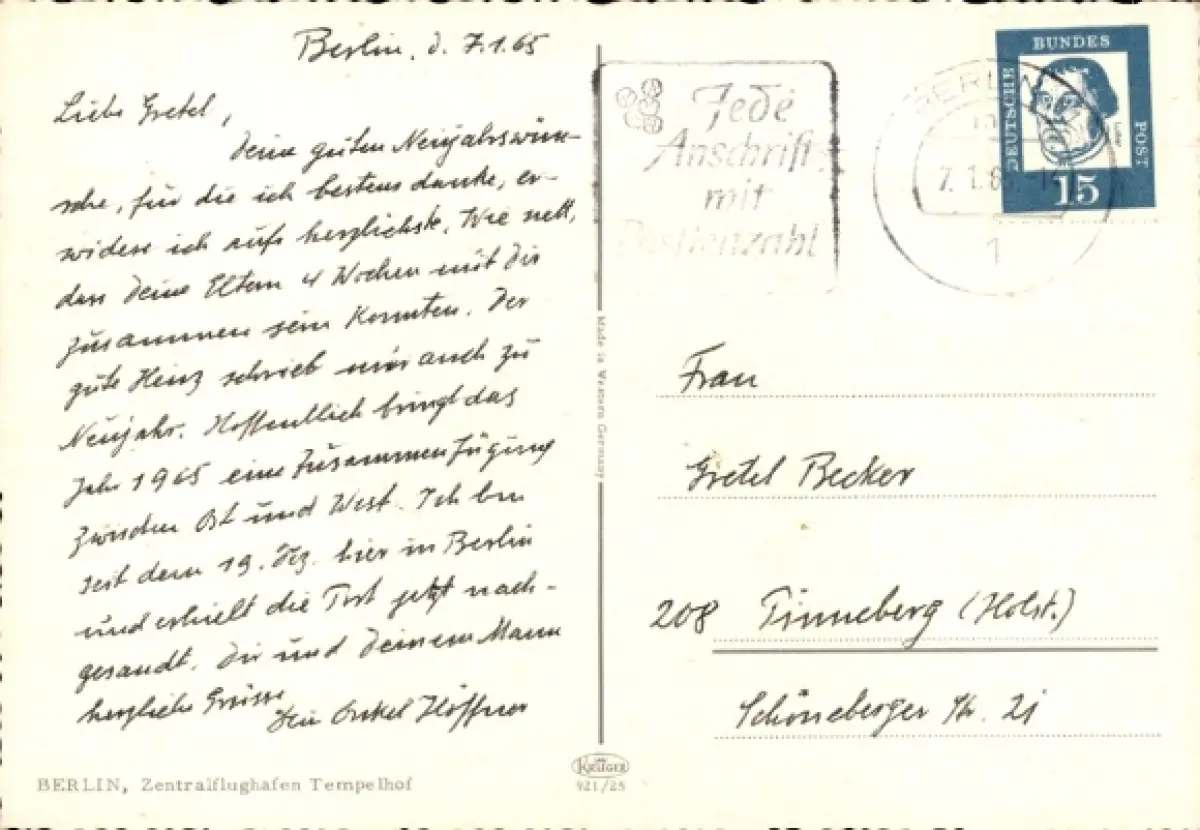 Berlin, d. 7.1.65
Liebe Gretel,
Deine guten Neujahrswün-
sche, für die ich bestens danke, er-
widere ich aufs herzlichste. Wie nett,
dass Deine Eltern 4 Wochen mit Dir
zusammen sein konnten. Der
gute Heinz schrieb mir auch zu
Neujahr. Hoffentlich bringt das
Jahr 1965 eine Zusammenfügung
zwischen Ost und West. Ich bin
seit dem 19. Dez. hier in Berlin
und erhielt die Post jetzt nach-
gesandt. Dir und Deinem Mann
herzliche Grüsse
Dein Onkel Höffner
BERLIN, Zentralflughafen Tempelhof
Made in Western Germany
KRÜGER
921/25
Jede
Anschrift
mit
Postleitzahl
BERLIN
7. 1. 65
1
DEUTSCHE
BUNDES
POST
Luther
15
Frau
Gretel Becker
208 Pinneberg (Holst.)
Schöneberger Str. 21